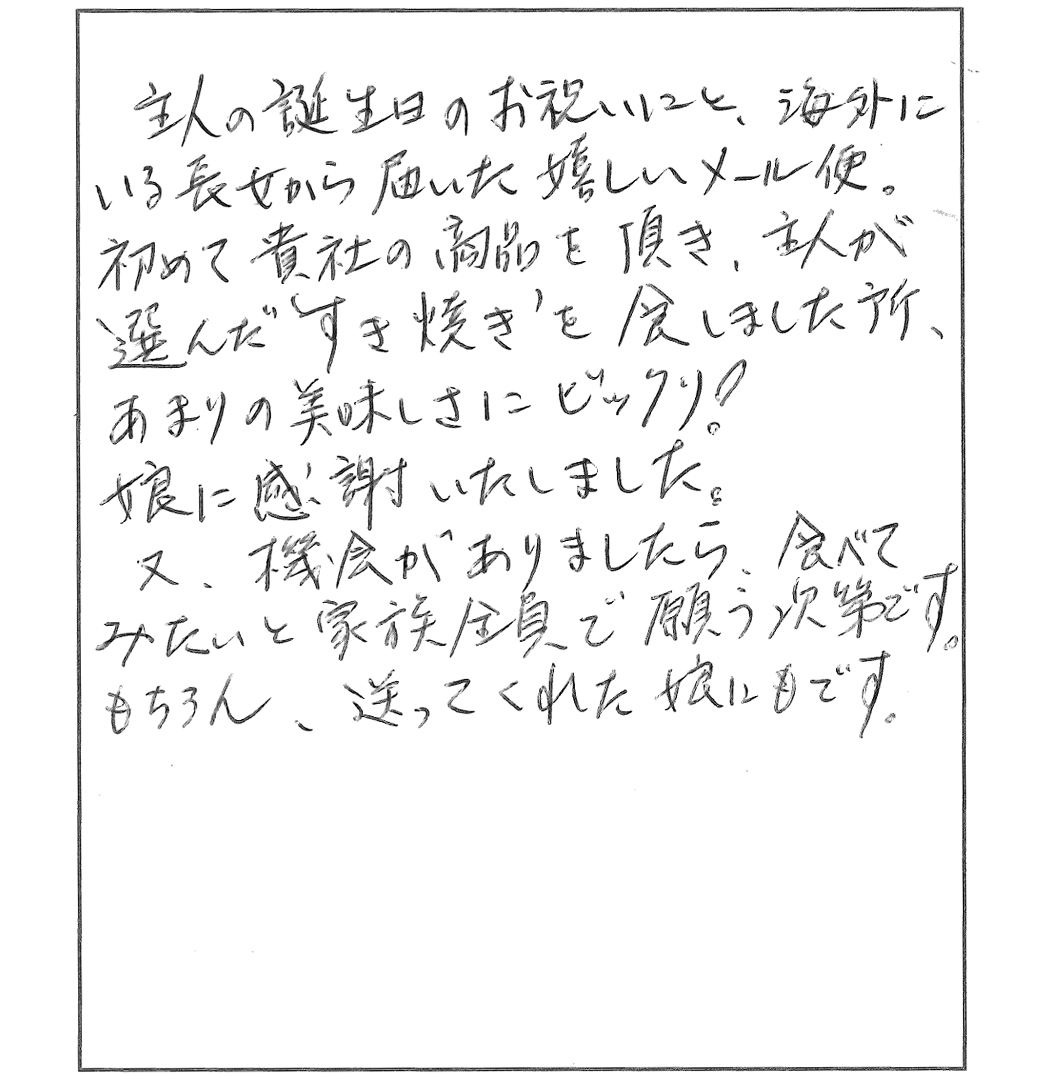 主人の誕生日のお祝いにと、海外に
いる長女から届いた嬉しいメール便。
初めて貴社の商品を頂き、主人が
選んだ'すき焼き'を食しました所、
あまりの美味しさにビックリ!
娘に感謝いたしました。
又、機会がありましたら、食べて
みたいと家族全員で願う次第です。
もちろん、送ってくれた娘にもです。